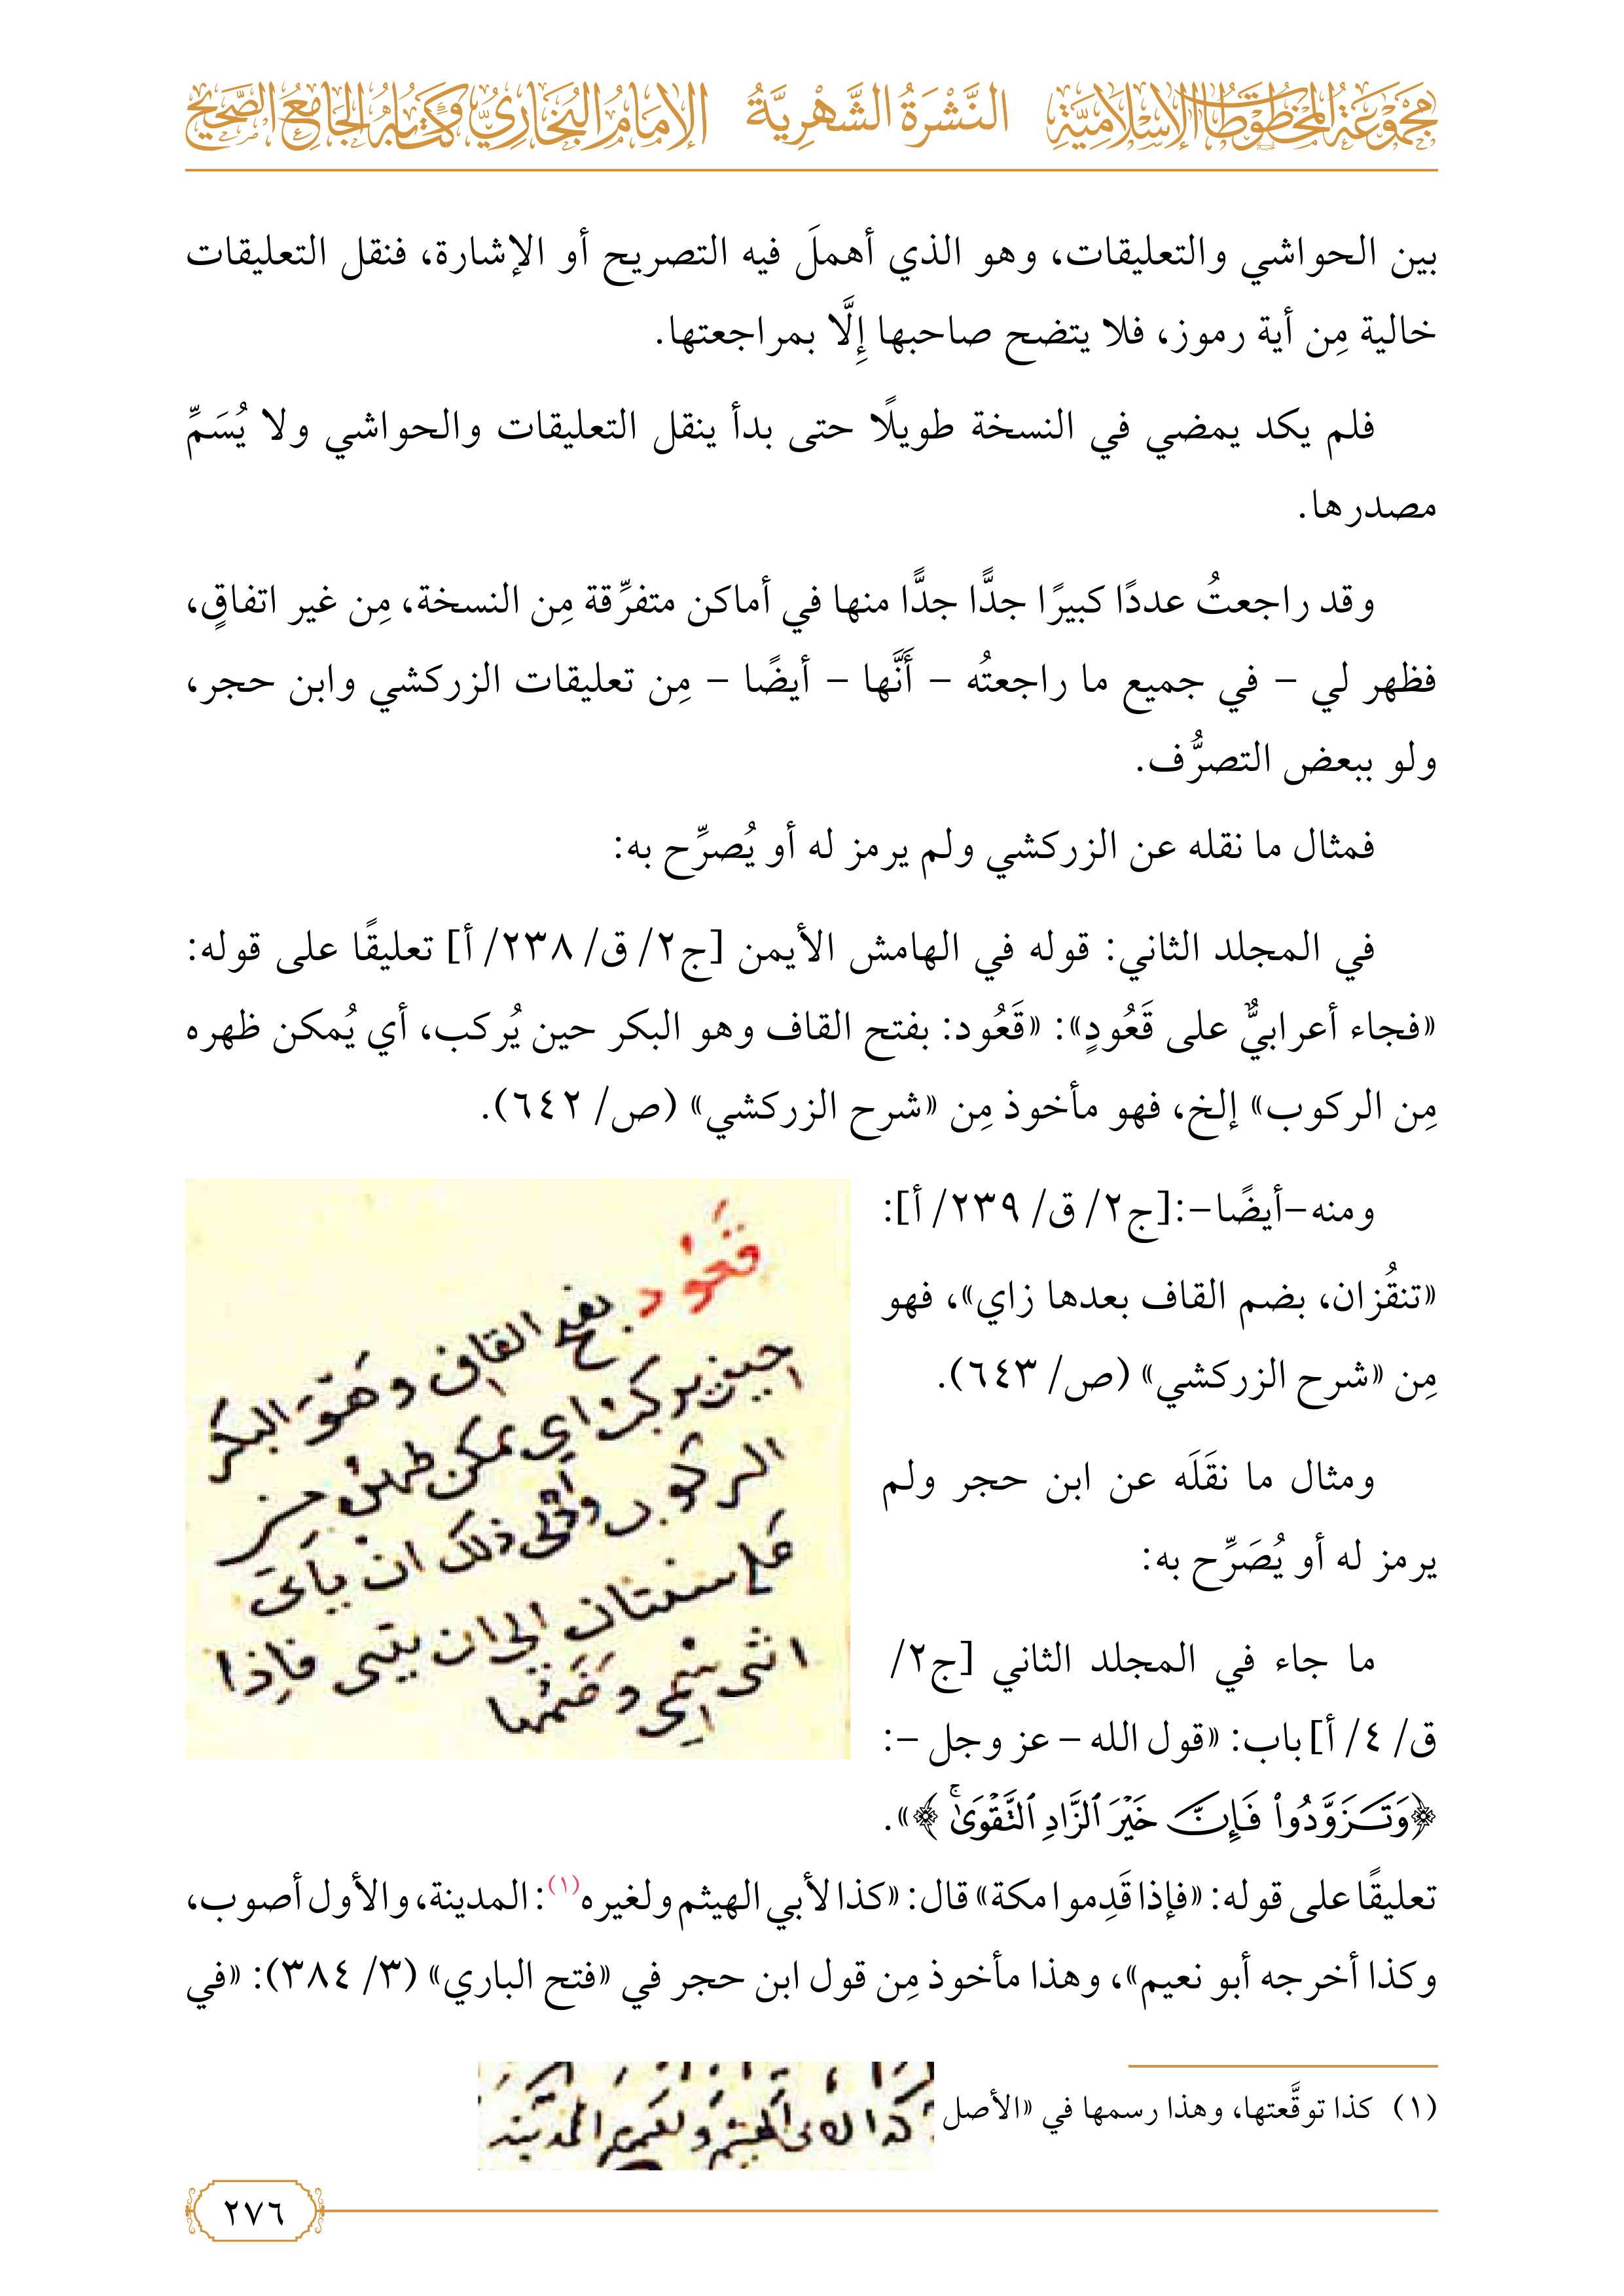 مَجْمُوعَةُ المَخْطُوطَاتِ الإِسْلَامِيَّةِ النَّشْرَةُ الشَّهْرِيَّةُ الإِمَامُ البُخَارِيُّ وَكِتَابُهُ الجَامِعُ الصَّحِيحُ
بين الحواشي والتعليقات، وهو الذي أهملَ فيه التصريح أو الإشارة، فنقل التعليقات
خالية مِن أية رموز، فلا يتضح صاحبها إِلَّا بمراجعتها.
فلم يكد يمضي في النسخة طويلًا حتى بدأ ينقل التعليقات والحواشي ولا يُسَمِّ
مصدرها.
وقد راجعتُ عددًا كبيرًا جدًّا جدًّا منها في أماكن متفرِّقة مِن النسخة، مِن غير اتفاقٍ،
فظهر لي – في جميع ما راجعتُه – أَنَّها – أيضًا – مِن تعليقات الزركشي وابن حجر،
ولو ببعض التصرُّف.
فمثال ما نقله عن الزركشي ولم يرمز له أو يُصرِّح به:
في المجلد الثاني: قوله في الهامش الأيمن [ج٢/ ق/ ٢٣٨/ أ] تعليقًا على قوله:
«فجاء أعرابيٌّ على قَعُودٍ»: «قَعُود: بفتح القاف وهو البكر حين يُركب، أي يُمكن ظهره
مِن الركوب» إلخ، فهو مأخوذ مِن «شرح الزركشي» (ص/ ٦٤٢).
ومنه–أيضًا–:[ج٢/ ق/ ٢٣٩/ أ]:
«تنقُزان، بضم القاف بعدها زاي»، فهو
مِن «شرح الزركشي» (ص/ ٦٤٣).
ومثال ما نقَلَه عن ابن حجر ولم
يرمز له أو يُصَرِّح به:
ما جاء في المجلد الثاني [ج٢/
ق/ ٤/ أ] باب: «قول الله – عز وجل –:
﴿وَتَزَوَّدُواْ فَإِنَّ خَيْرَ ٱلزَّادِ ٱلتَّقْوَىٰۚ﴾».
قَعُود بفتح القاف وهو البكر
حين يركب اي يمكن ظهره من
الركوب ذلك ان ياتي
عليه سنتان الى ان يثنى فاذا
اثنى سمي
تعليقًا على قوله: «فإذا قَدِموا مكة» قال: «كذا لأبي الهيثم ولغيره(١): المدينة، والأول أصوب،
وكذا أخرجه أبو نعيم»، وهذا مأخوذ مِن قول ابن حجر في «فتح الباري» (٣/ ٣٨٤): «في
(١) كذا توقَّعتها، وهذا رسمها في «الأصل
كذا لابي الهيثم ولغيره المدينة
٢٧٦